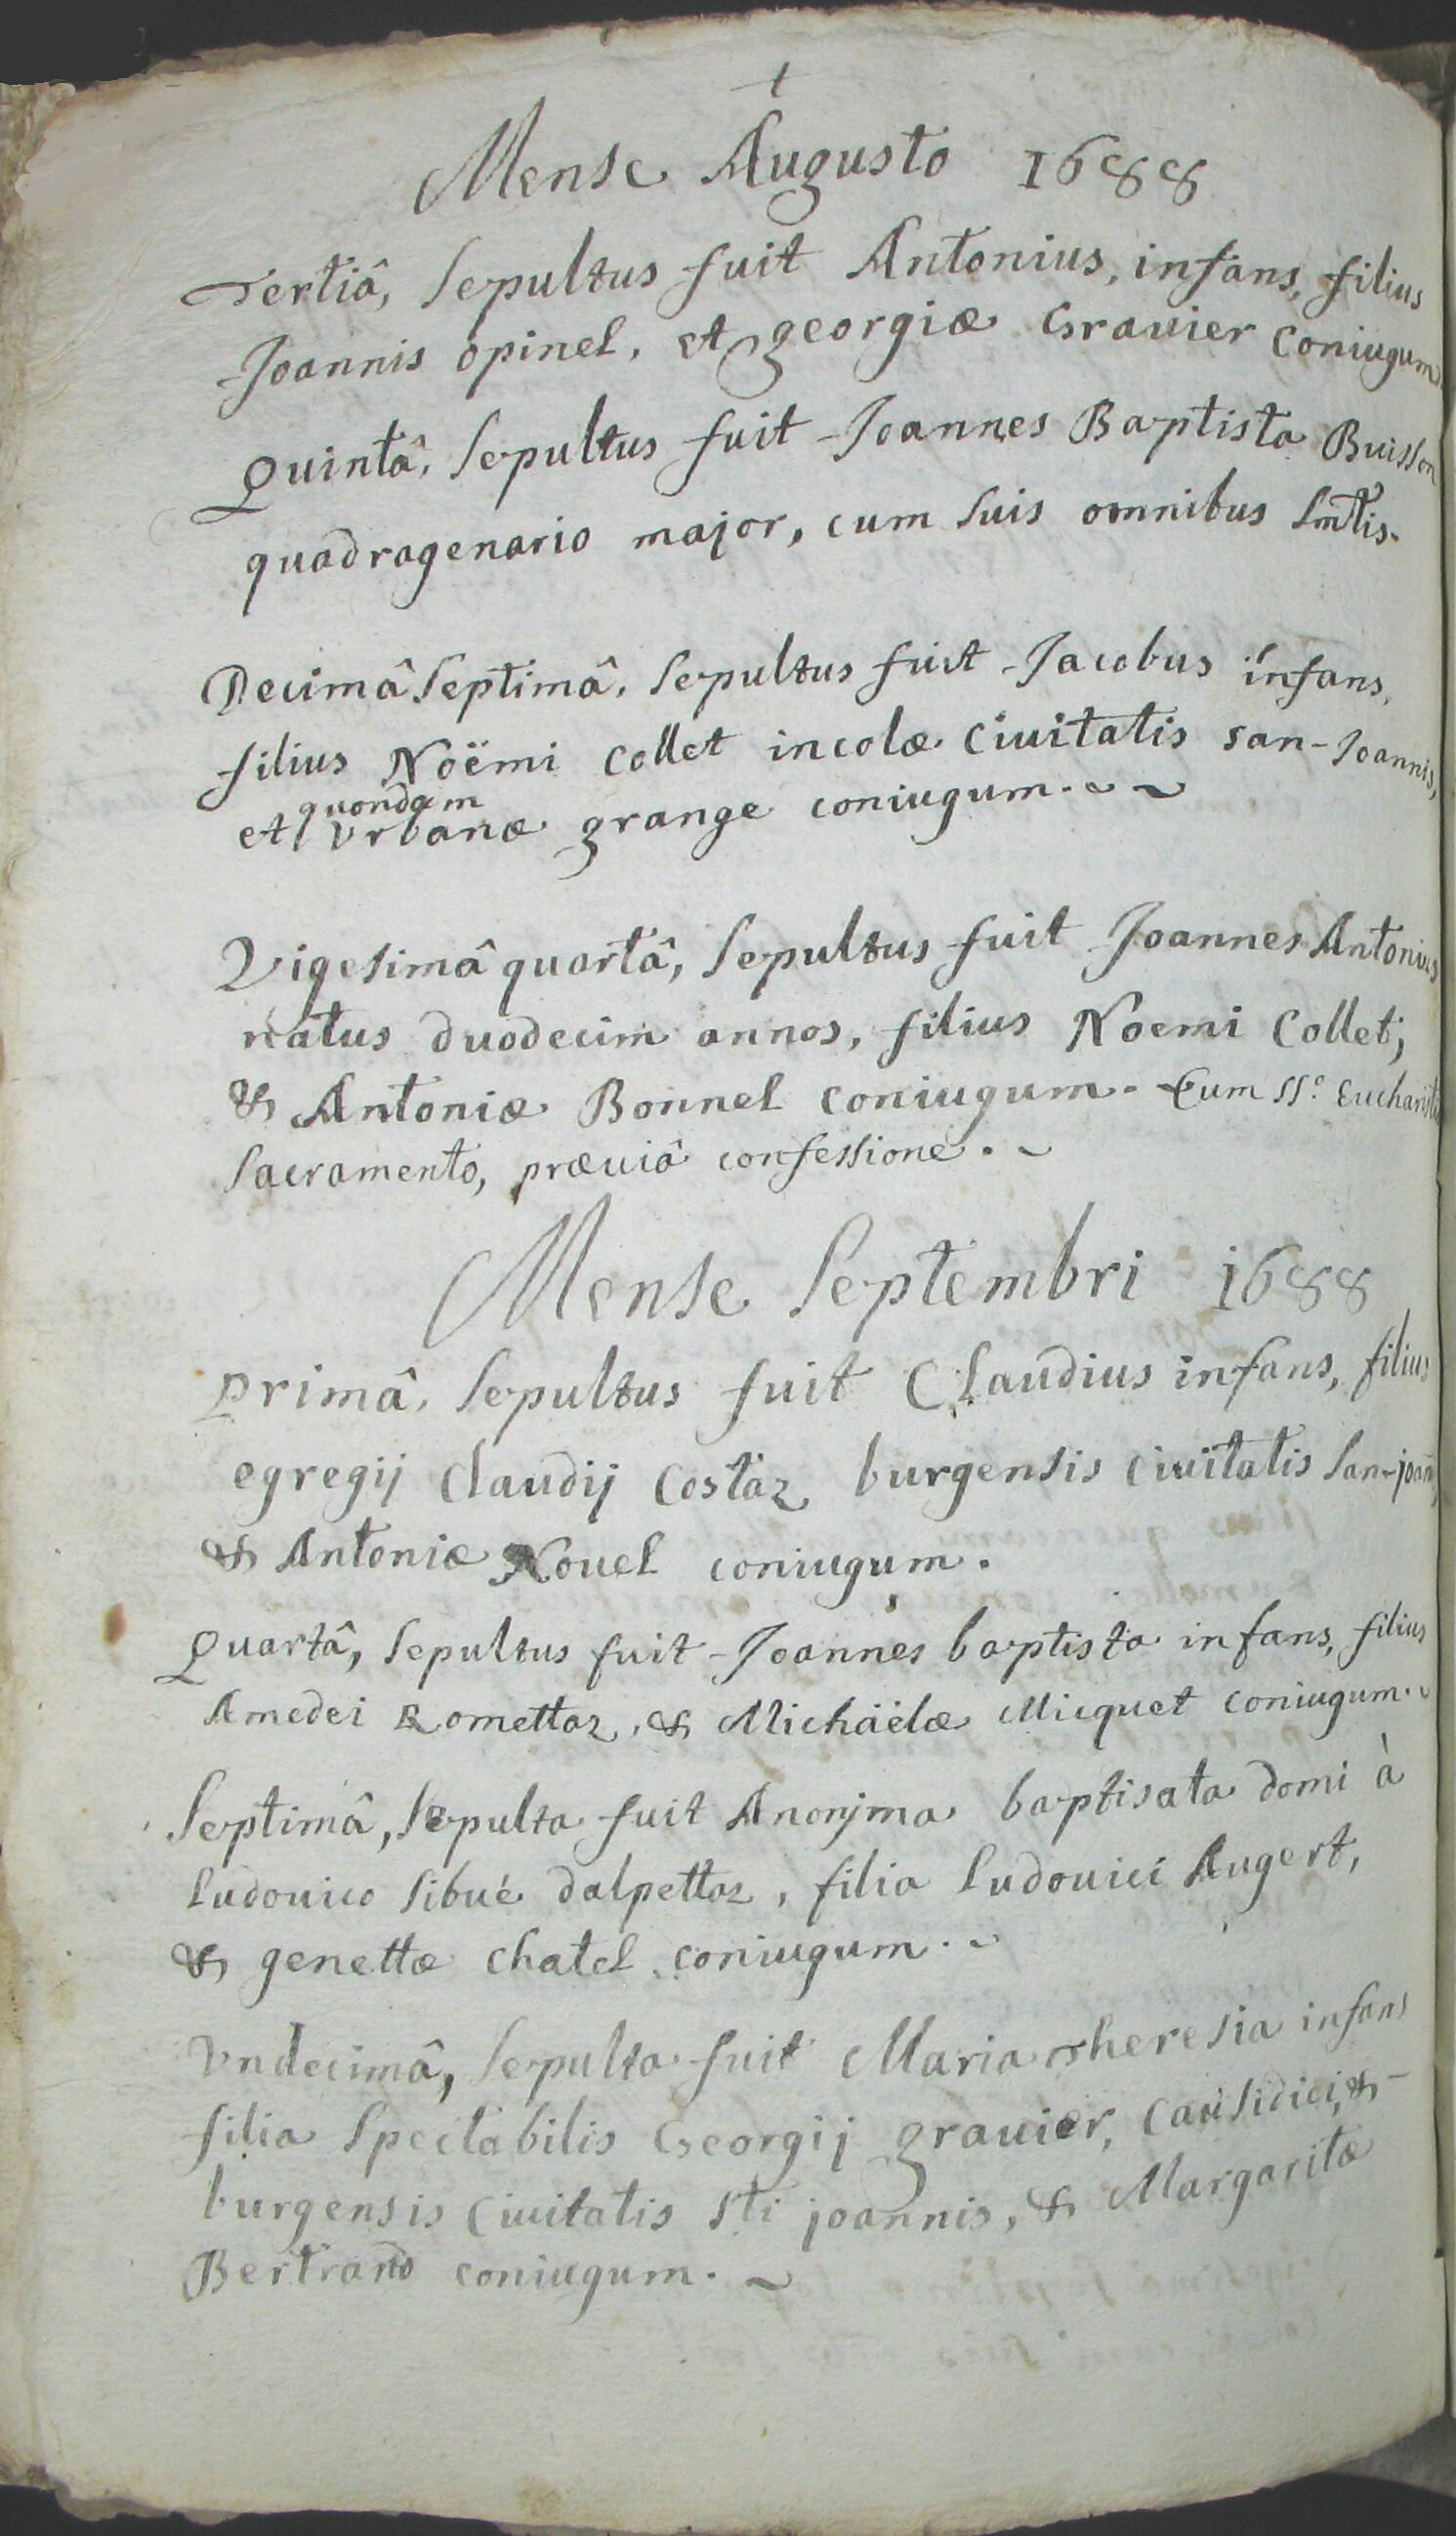 †
Mense Augusto 1688
Tertiâ, sepultus fuit Antonius, infans, filius
Joannis opinel, et georgiæ Grauier coniugum
Quintâ, sepultus fuit Joannes Baptista Buisson
quadragenario major, cum suis omnibus smtis.
Decimâ septimâ, sepultus fuit Jacobus infans,
filius Noëmi Collet incolæ Ciuitatis san-Joannis,
quondam
et Vrbanæ grange coniugum. ~ ~
Vigesimâ quartâ, sepultus fuit Joannes Antonius
natus duodecim annos, filius Noemi Collet,
& Antoniæ Bonnel coniugum. Cum SS.º Eucharistiæ
sacramento, præuiâ confessione. ~
Mense Septembri 1688
primâ, sepultus fuit Claudius infans, filius
egregij Claudij Costaz burgensis ciuitatis san-joannis,
& Antoniæ Nouel coniugum.
Quartâ, sepultus fuit Joannes baptista infans, filius
Amedei Romettaz, & Michäelæ Micquet coniugum. ~
Septimâ, sepulta fuit Anonjma baptisata domi à
Ludouico sibué dalpettaz, filia Ludouici Augert,
& genettæ chatel coniugum. ~
Vndecimâ, sepulta fuit Maria Theresia infans
filia spectabilis Georgij grauier, causidici, &
burgensis ciuitatis sti joannis, & Margaritæ
Bertrand coniugum. ~